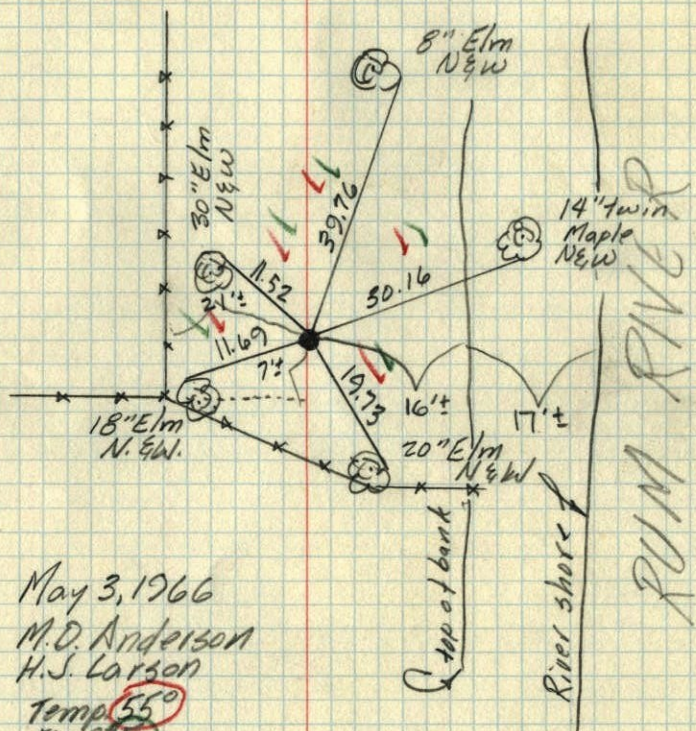 8" Elm
N&W
30" Elm
N&W
39.76
14" twin
Maple
N&W
11.52
30.16
21'±
11.69
7'±
19.73
16'±
17'±
18" Elm
N.&W.
20" Elm
N&W
RUM RIVER
top of bank
River shore
May 3, 1966
M.O. Anderson
H.J. Larson
Temp. 55°